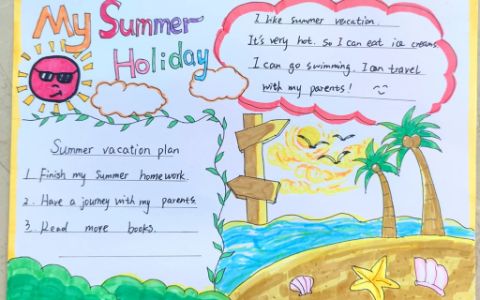 My Summer
Holiday
I like summer vacation.
It's very hot. So I can eat ice creams
I can go swimming. I can travel
with my parents!
Summer vacation plan
1. Finish my summer homework.
2. Have a journey with my parents.
3. Read more books.